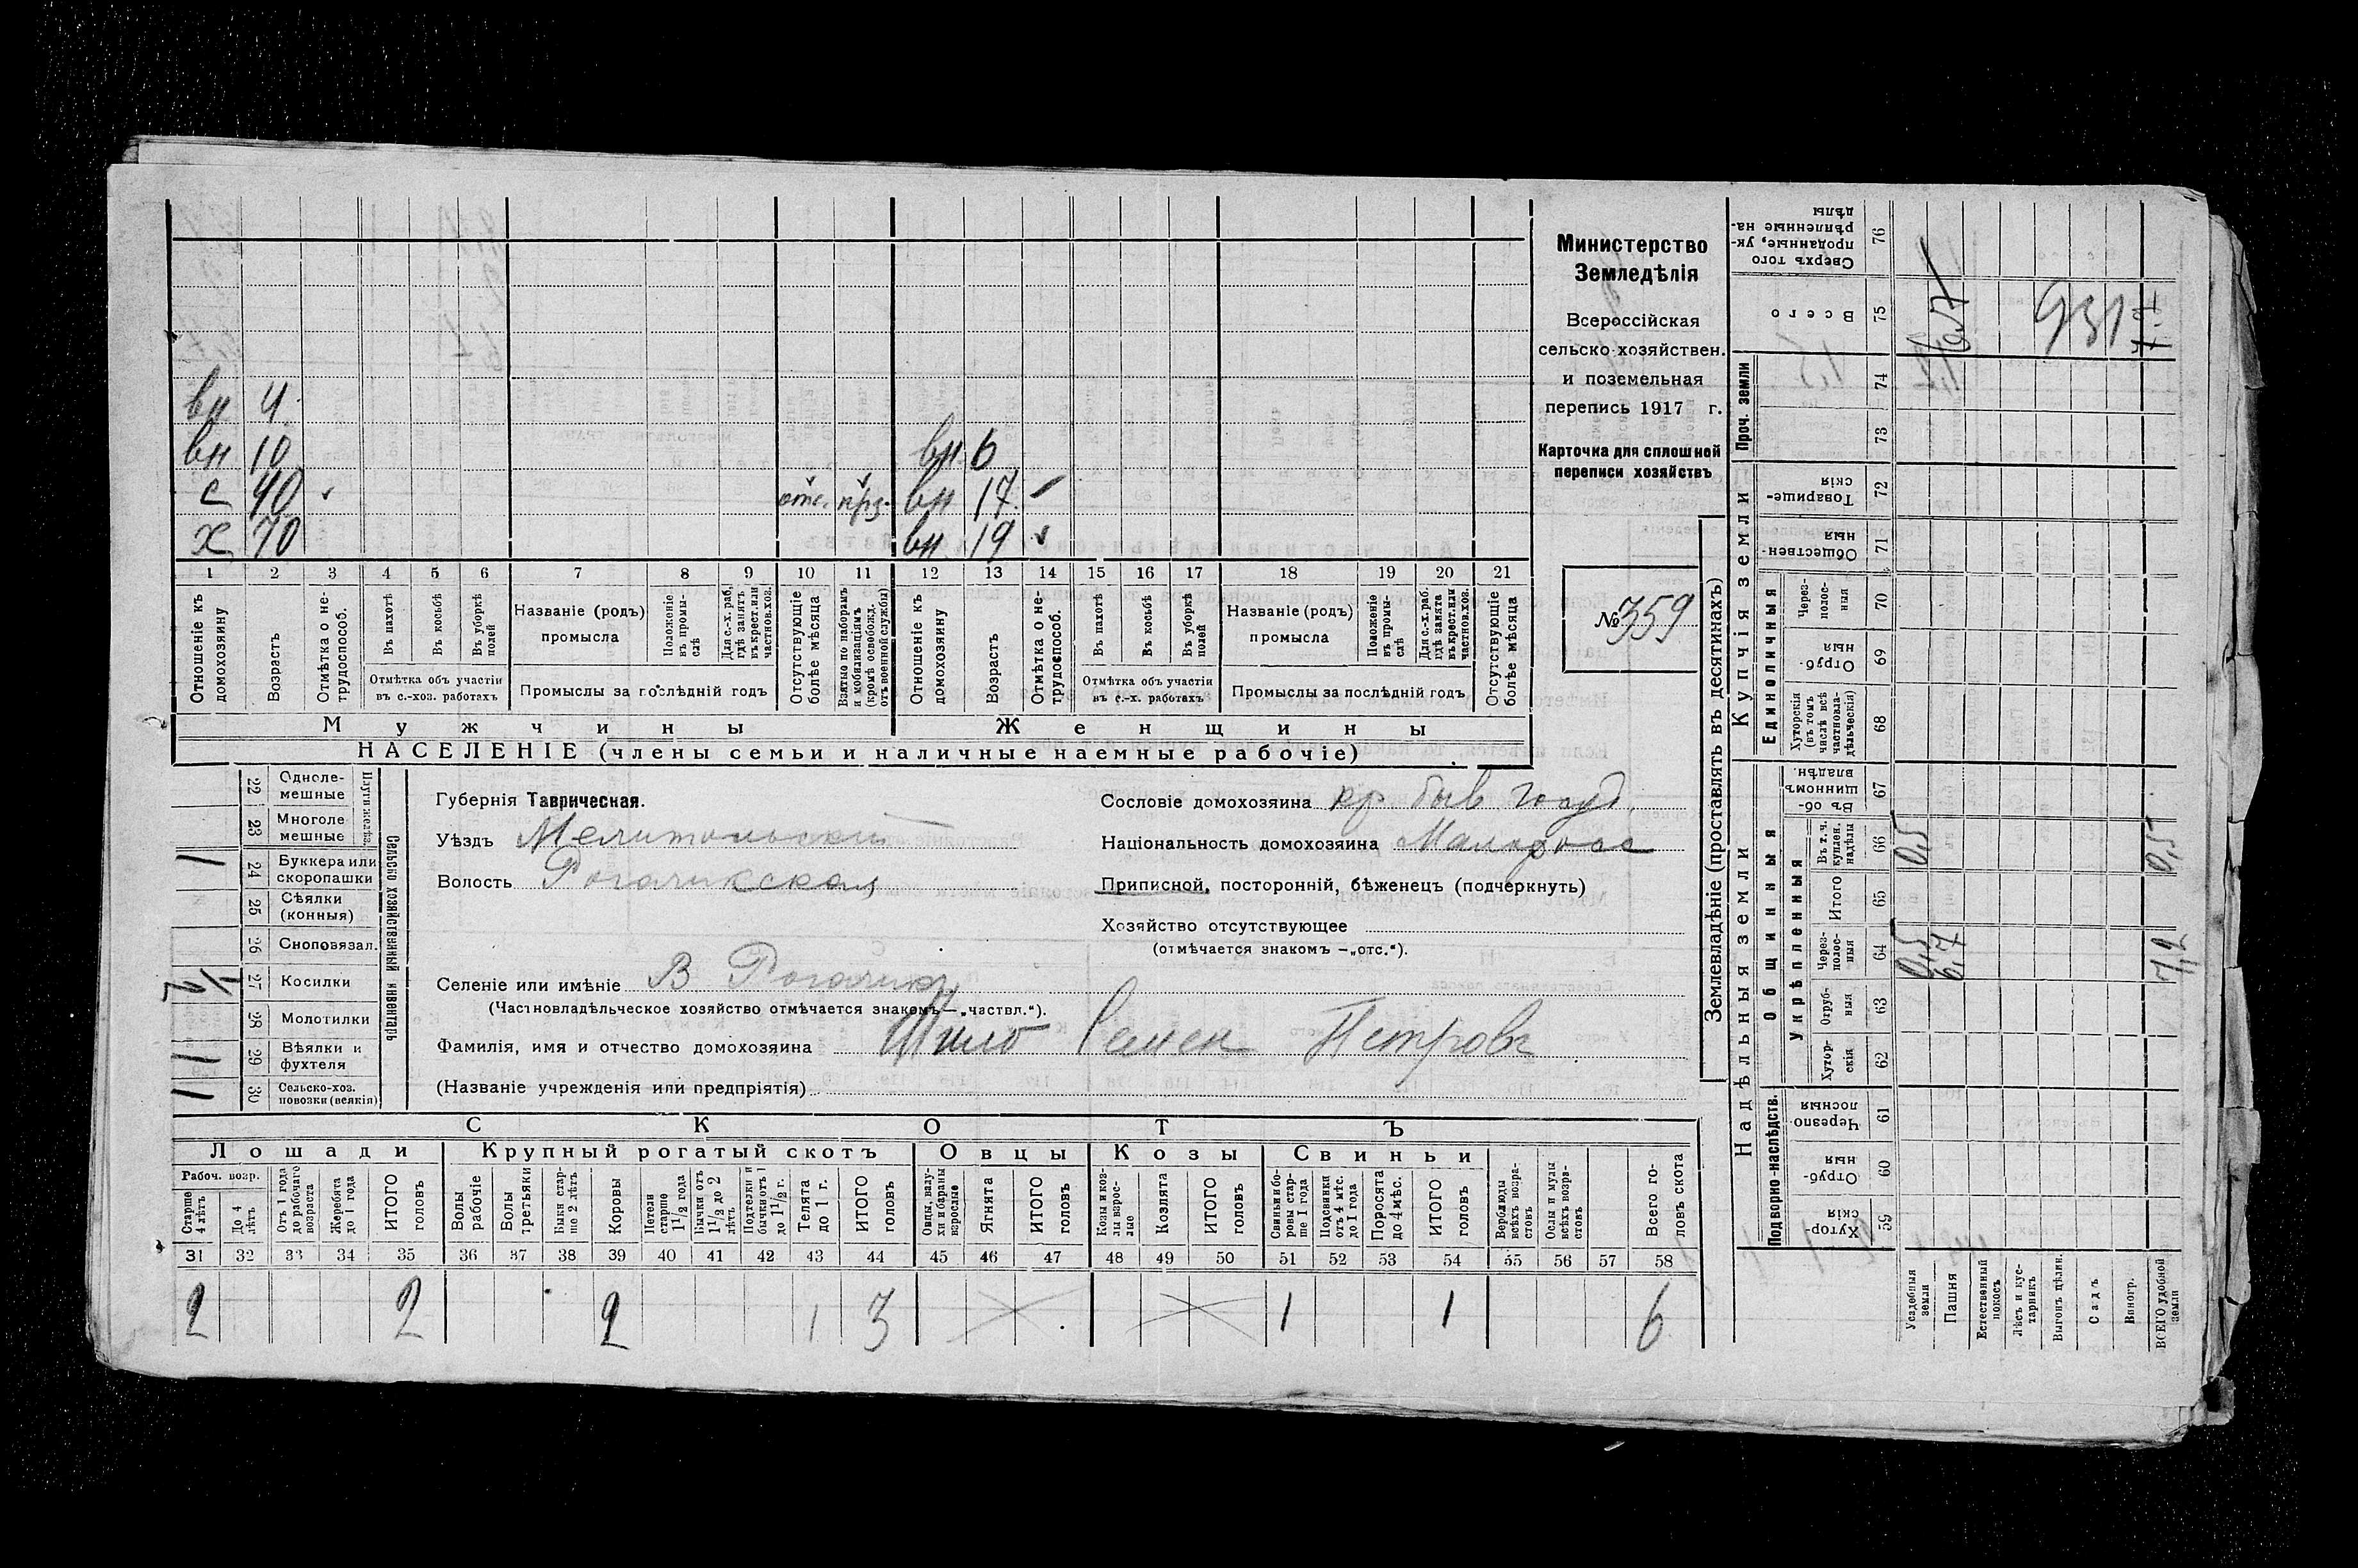 вн 4
вн 10 вн 6
с 40 отс. прз. вн 17
х 70 вн 19
1 2 3 4 5 6 7 8 9 10 11 12 13 14 15 16 17 18 19 20 21
Отношеніе къ домохозяину
Возрастъ
Отмѣтка о не-трудоспособ.
Въ пахотѣ
Въ косьбѣ
Въ уборкѣ полей
Отмѣтка объ участіи
въ с.-хоз. работахъ
Названіе (родъ)
промысла
Положеніе въ промы-слѣ
Для с.-х. раб. гдѣ занятъ въ крест. или частнов. хоз.
Промыслы за послѣдній годъ
Отсутствующіе болѣе мѣсяца
Взятые по наборамъ и мобилизаціямъ (кромѣ освобожд. отъ военной службы)
Отношеніе къ домохозяину
Возрастъ
Отмѣтка о не-трудоспособ.
Въ пахотѣ
Въ косьбѣ
Въ уборкѣ полей
Отмѣтка объ участіи
въ с.-х. работахъ
Названіе (родъ)
промысла
Положеніе въ промы-слѣ
Для с.-х. раб. гдѣ занята въ крест. или частнов. хоз.
Промыслы за послѣдній годъ
Отсутствующіе болѣе мѣсяца
Мужчины Женщины
НАСЕЛЕНІЕ (члены семьи и наличные наемные рабочіе)
Министерство
Земледѣлія
Всероссійская
сельско-хозяйствен.
и поземельная
перепись 1917 г.
Карточка для сплошной
переписи хозяйствъ
№ 359
22 Одноле-мешные
23 Многоле-мешные
Плуги желѣз.
1 24 Буккера или скоропашки
25 Сѣялки (конныя)
26 Сноповязал.
27 Косилки
28 Молотилки
1 29 Вѣялки и фухтеля
1 30 Сельско-хоз. повозки (всякія)
Сельско хозяйственный инвентарь
Губернія Таврическая.
Уѣздъ Мелитопольскій
Волость Рогачикская
Селеніе или имѣніе В Рогачикъ
(Частновладѣльческое хозяйство отмѣчается знакомъ — „частвл.“).
Фамилія, имя и отчество домохозяина Шило Семен Петровъ
(Названіе учрежденія или предпріятія)
Сословіе домохозяина кр быв госуд.
Національность домохозяина Малоросс
Приписной, посторонній, бѣженецъ (подчеркнуть)
Хозяйство отсутствующее
(отмѣчается знакомъ — „отс.“).
СКОТЪ
Лошади Крупный рогатый скотъ Овцы Козы Свиньи
Рабоч. возр.
Старше 4 лѣтъ
До 4 лѣтъ
Отъ 1 года до рабочаго возраста
Жеребята до 1 года
ИТОГО головъ
Волы рабочіе
Волы третьяки
Быки стар-ше 2 лѣтъ
Коровы
Нетели старше 1 1/2 года
Бычки отъ 1 1/2 до 2 лѣтъ
Подтелки и бычки отъ 1 до 1 1/2 г.
Телята до 1 г.
ИТОГО головъ
Овцы, валу-хи и бараны взрослые
Ягнята
ИТОГО головъ
Козы и коз-лы взрос-лые
Козлята
ИТОГО головъ
Свиньи и бо-ровы стар-ше 1 года
Подсвинки отъ 4 мѣс. до 1 года
Поросята до 4 мѣс.
ИТОГО головъ
Верблюды всѣхъ возра-стовъ
Ослы и мулы всѣхъ возра-стовъ
Всего го-ловъ скота
31 32 33 34 35 36 37 38 39 40 41 42 43 44 45 46 47 48 49 50 51 52 53 54 55 56 57 58
2 2 2 1 3 1 1 6
Землевладѣніе (проставлять въ десятинахъ)
Надѣльныя земли Купчія земли Проч. земли
Подворно-наслѣдств.
Общинныя
Укрѣпленныя
Единоличныя
Хутор-скія 59
Отруб-ныя 60
Черезпо-лосныя 61
Хутор-скія 62
Отруб-ныя 63
Черезполос-ныя 64 0,5 6,7 7,2
Итого 65
Въ т. ч. куплен. надѣлы 66 0,5 0,5
Въ об-щинномъ владѣн. 67
Хуторскія (въ томъ числѣ всѣ частновла-дѣльческія) 68
Отруб-ныя 69
Через-полос-ныя 70
Обществен-ныя 71
Товарище-скія 72
73
74
Всего 75 6,7 931
Сверхъ того проданные, ук-рѣпленные на-дѣлы 76
Усадебныя земли
Пашня
Естественный покосъ
Лѣсъ и кус-тарникъ
Выгонъ цѣлин.
Садъ
Виногр.
ВСЕГО удобной земли